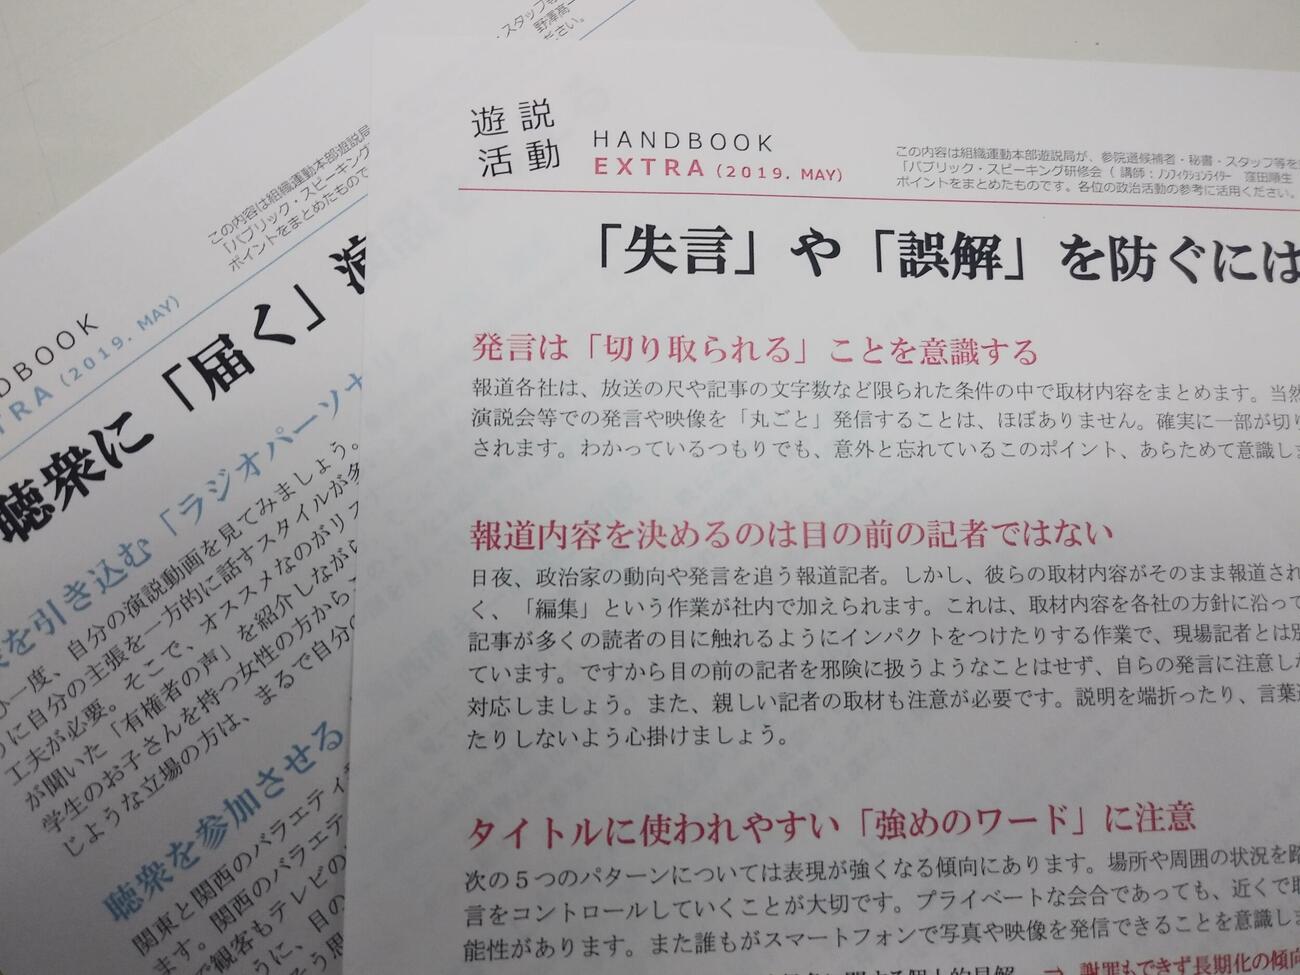 遊説
活動
HANDBOOK
EXTRA (2019. MAY)
この内容は組織運動本部遊説局が、参院選候補者・秘書・スタッフ等を
「パブリック・スピーキング研修会（ 講師：ﾉﾝﾌｨｸｼｮﾝﾗｲﾀｰ 窪田順生
ポイントをまとめたものです。各位の政治活動の参考に活用ください。
「失言」や「誤解」を防ぐには
発言は「切り取られる」ことを意識する
報道各社は、放送の尺や記事の文字数など限られた条件の中で取材内容をまとめます。当然
演説会等での発言や映像を「丸ごと」発信することは、ほぼありません。確実に一部が切り
されます。わかっているつもりでも、意外と忘れているこのポイント、あらためて意識しま
報道内容を決めるのは目の前の記者ではない
日夜、政治家の動向や発言を追う報道記者。しかし、彼らの取材内容がそのまま報道され
く、「編集」という作業が社内で加えられます。これは、取材内容を各社の方針に沿って
記事が多くの読者の目に触れるようにインパクトをつけたりする作業で、現場記者とは別
ています。ですから目の前の記者を邪険に扱うようなことはせず、自らの発言に注意しな
対応しましょう。また、親しい記者の取材も注意が必要です。説明を端折ったり、言葉遣
たりしないよう心掛けましょう。
タイトルに使われやすい「強めのワード」に注意
次の５つのパターンについては表現が強くなる傾向にあります。場所や周囲の状況を踏
言をコントロールしていくことが大切です。プライベートな会合であっても、近くで取
能性があります。また誰もがスマートフォンで写真や映像を発信できることを意識しま
関する個人的見解 ⇒ 謝罪もできず長期化の傾向
スタッフ等
野澤高一
ださい。
この内容は組織運動本部遊説局
「パブリック・スピーキング
ポイントをまとめたもので
DBOOK
TRA (2019. MAY)
聴衆に「届く」演
を引き込む「ラジオパーソナ
一度、自分の演説動画を見てみましょう。
に自分の主張を一方的に話すスタイルが多
工夫が必要。そこで、オススメなのがリス
が聞いた「有権者の声」を紹介しながら
学生のお子さんを持つ女性の方から
じような立場の方は、まるで自分の
聴衆を参加させる
関東と関西のバラエティ
ます。関西のバラエテ
で観客もテレビの
うに、目の
そう思